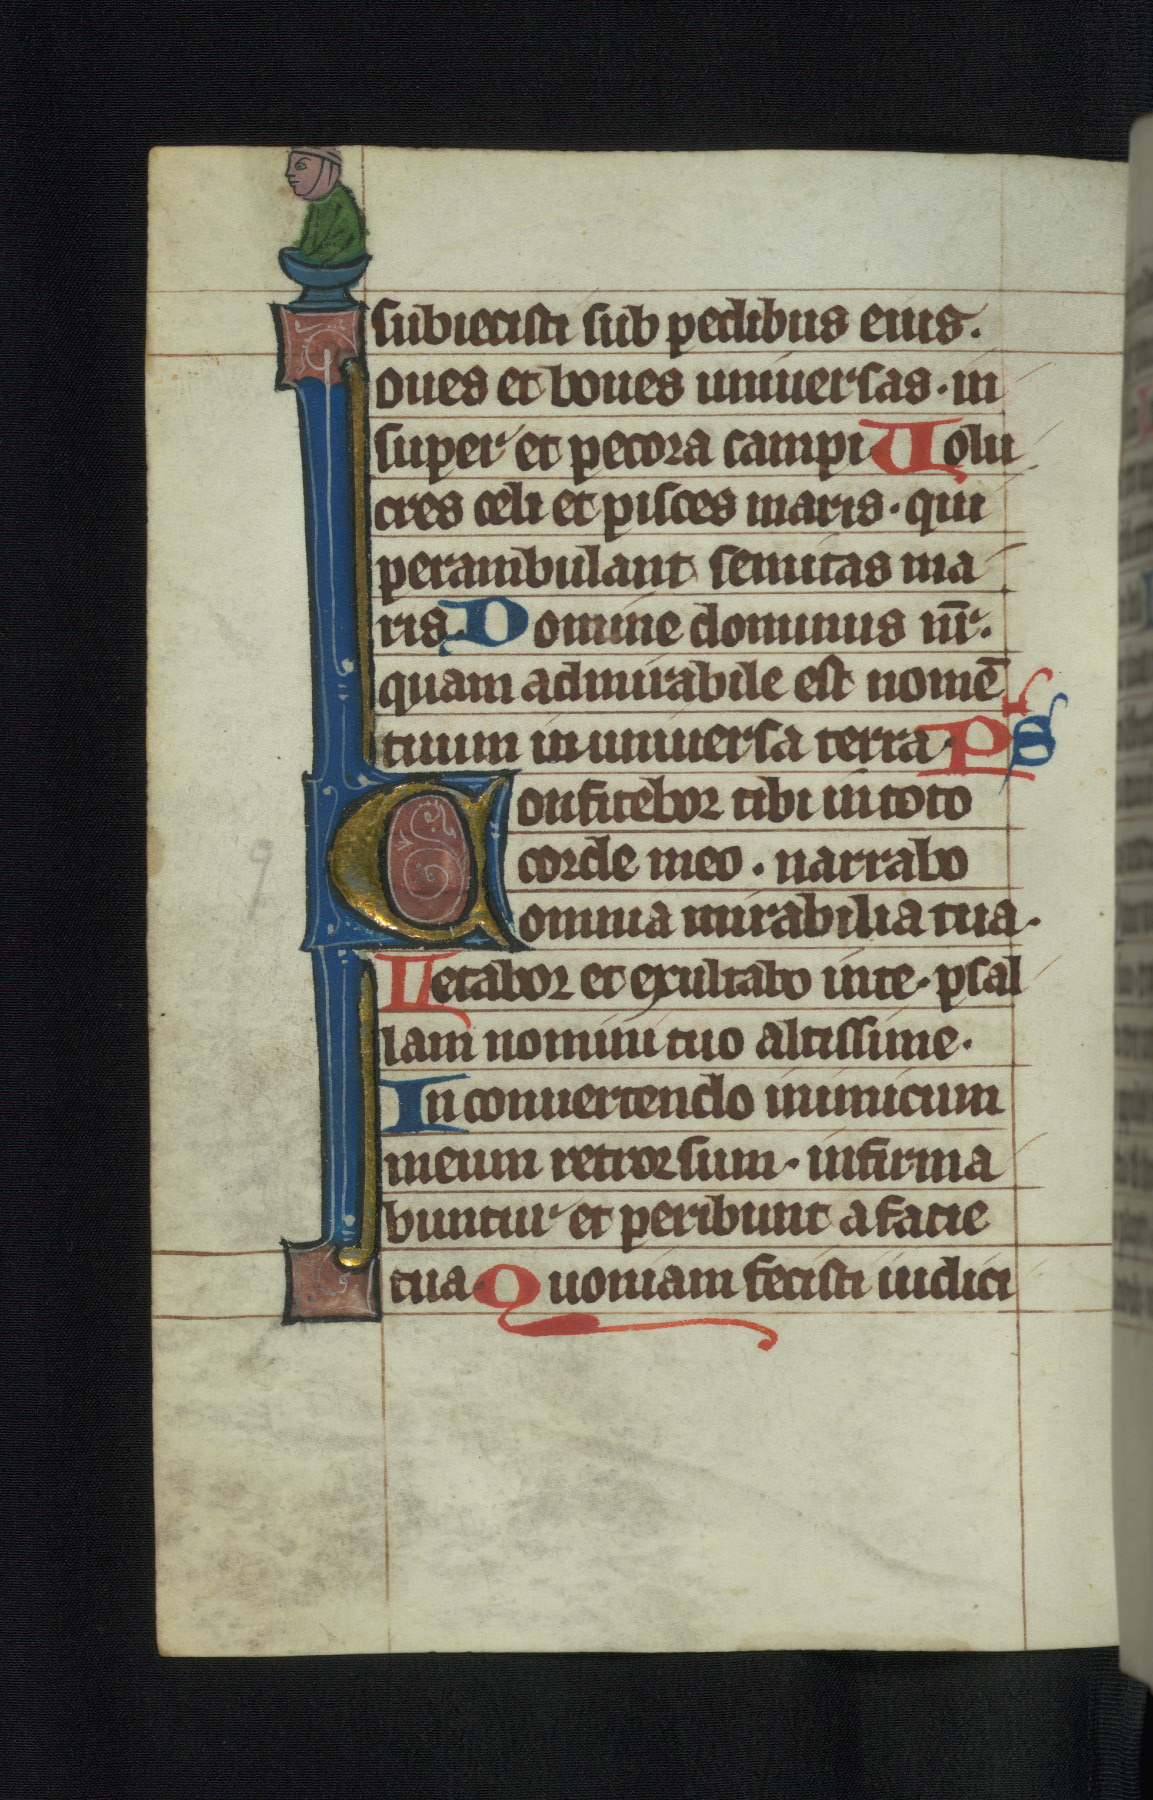 subiecisti sub pedibus eius.
Oues et boues uniuersas · in
super et pecora campi. Uolu
cres celi et pisces maris · qui
perambulant semitas ma
ris. Domine dominus nr̄.
quam admirabile est nomē
tuum in uniuersa terra · PS
Confitebor tibi in toto
corde meo · narrabo
omnia mirabilia tua ·
Letabor et exultabo in te · psal
lam nomini tuo altissime ·
In conuertendo inimicum
meum retrorsum · infirma
buntur et peribunt a facie
tua. Quoniam fecisti iudici
9